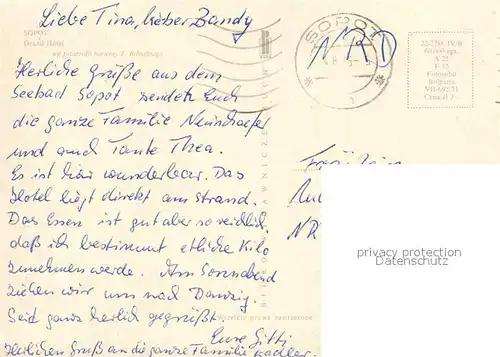 Liebe Tina, lieber Bandy
SOPOT
Grand Hotel
wg pocztówki barwnej T.
SOPOT
NRD
A 25
F 15
Herliche Grüße aus dem
Seebad Sopot sendet Euch
die ganze Familie Neinschaefer
und auch Tante Thea.
Es ist hier wunderbar. Das
Hotel liegt direkt am Strand.
Das Essen ist gut aber so reichlich,
daß ich bestimmt etliche Kilo
zunehmen werde. Am Sonnabend
ziehen wir um nach Danzig.
Seid ganz herlich gegrüßt
Eure Gitti
Herlichen Gruß an die ganze Familie
NR
privacy protection
Datenschutz